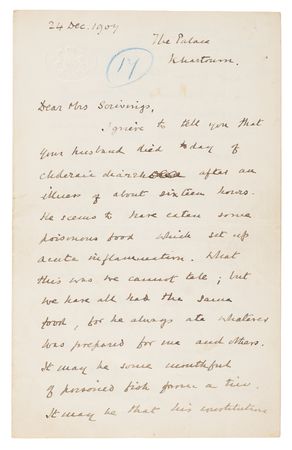 24 Dec. 1907
17
The Palace
Khartoum.
Dear Mrs Scrivings,
I grieve to tell you that
your husband died today of
choleraic diarrhoea after an
illness of about sixteen hours.
He seems to have eaten some
poisonous food which set up
acute inflammation. What
this was we cannot tell; but
we have all had the same
food, for he always ate whatever
was prepared for me and others.
It may be some mouthful
of poisoned fish from a tin.
It may be that his constitution